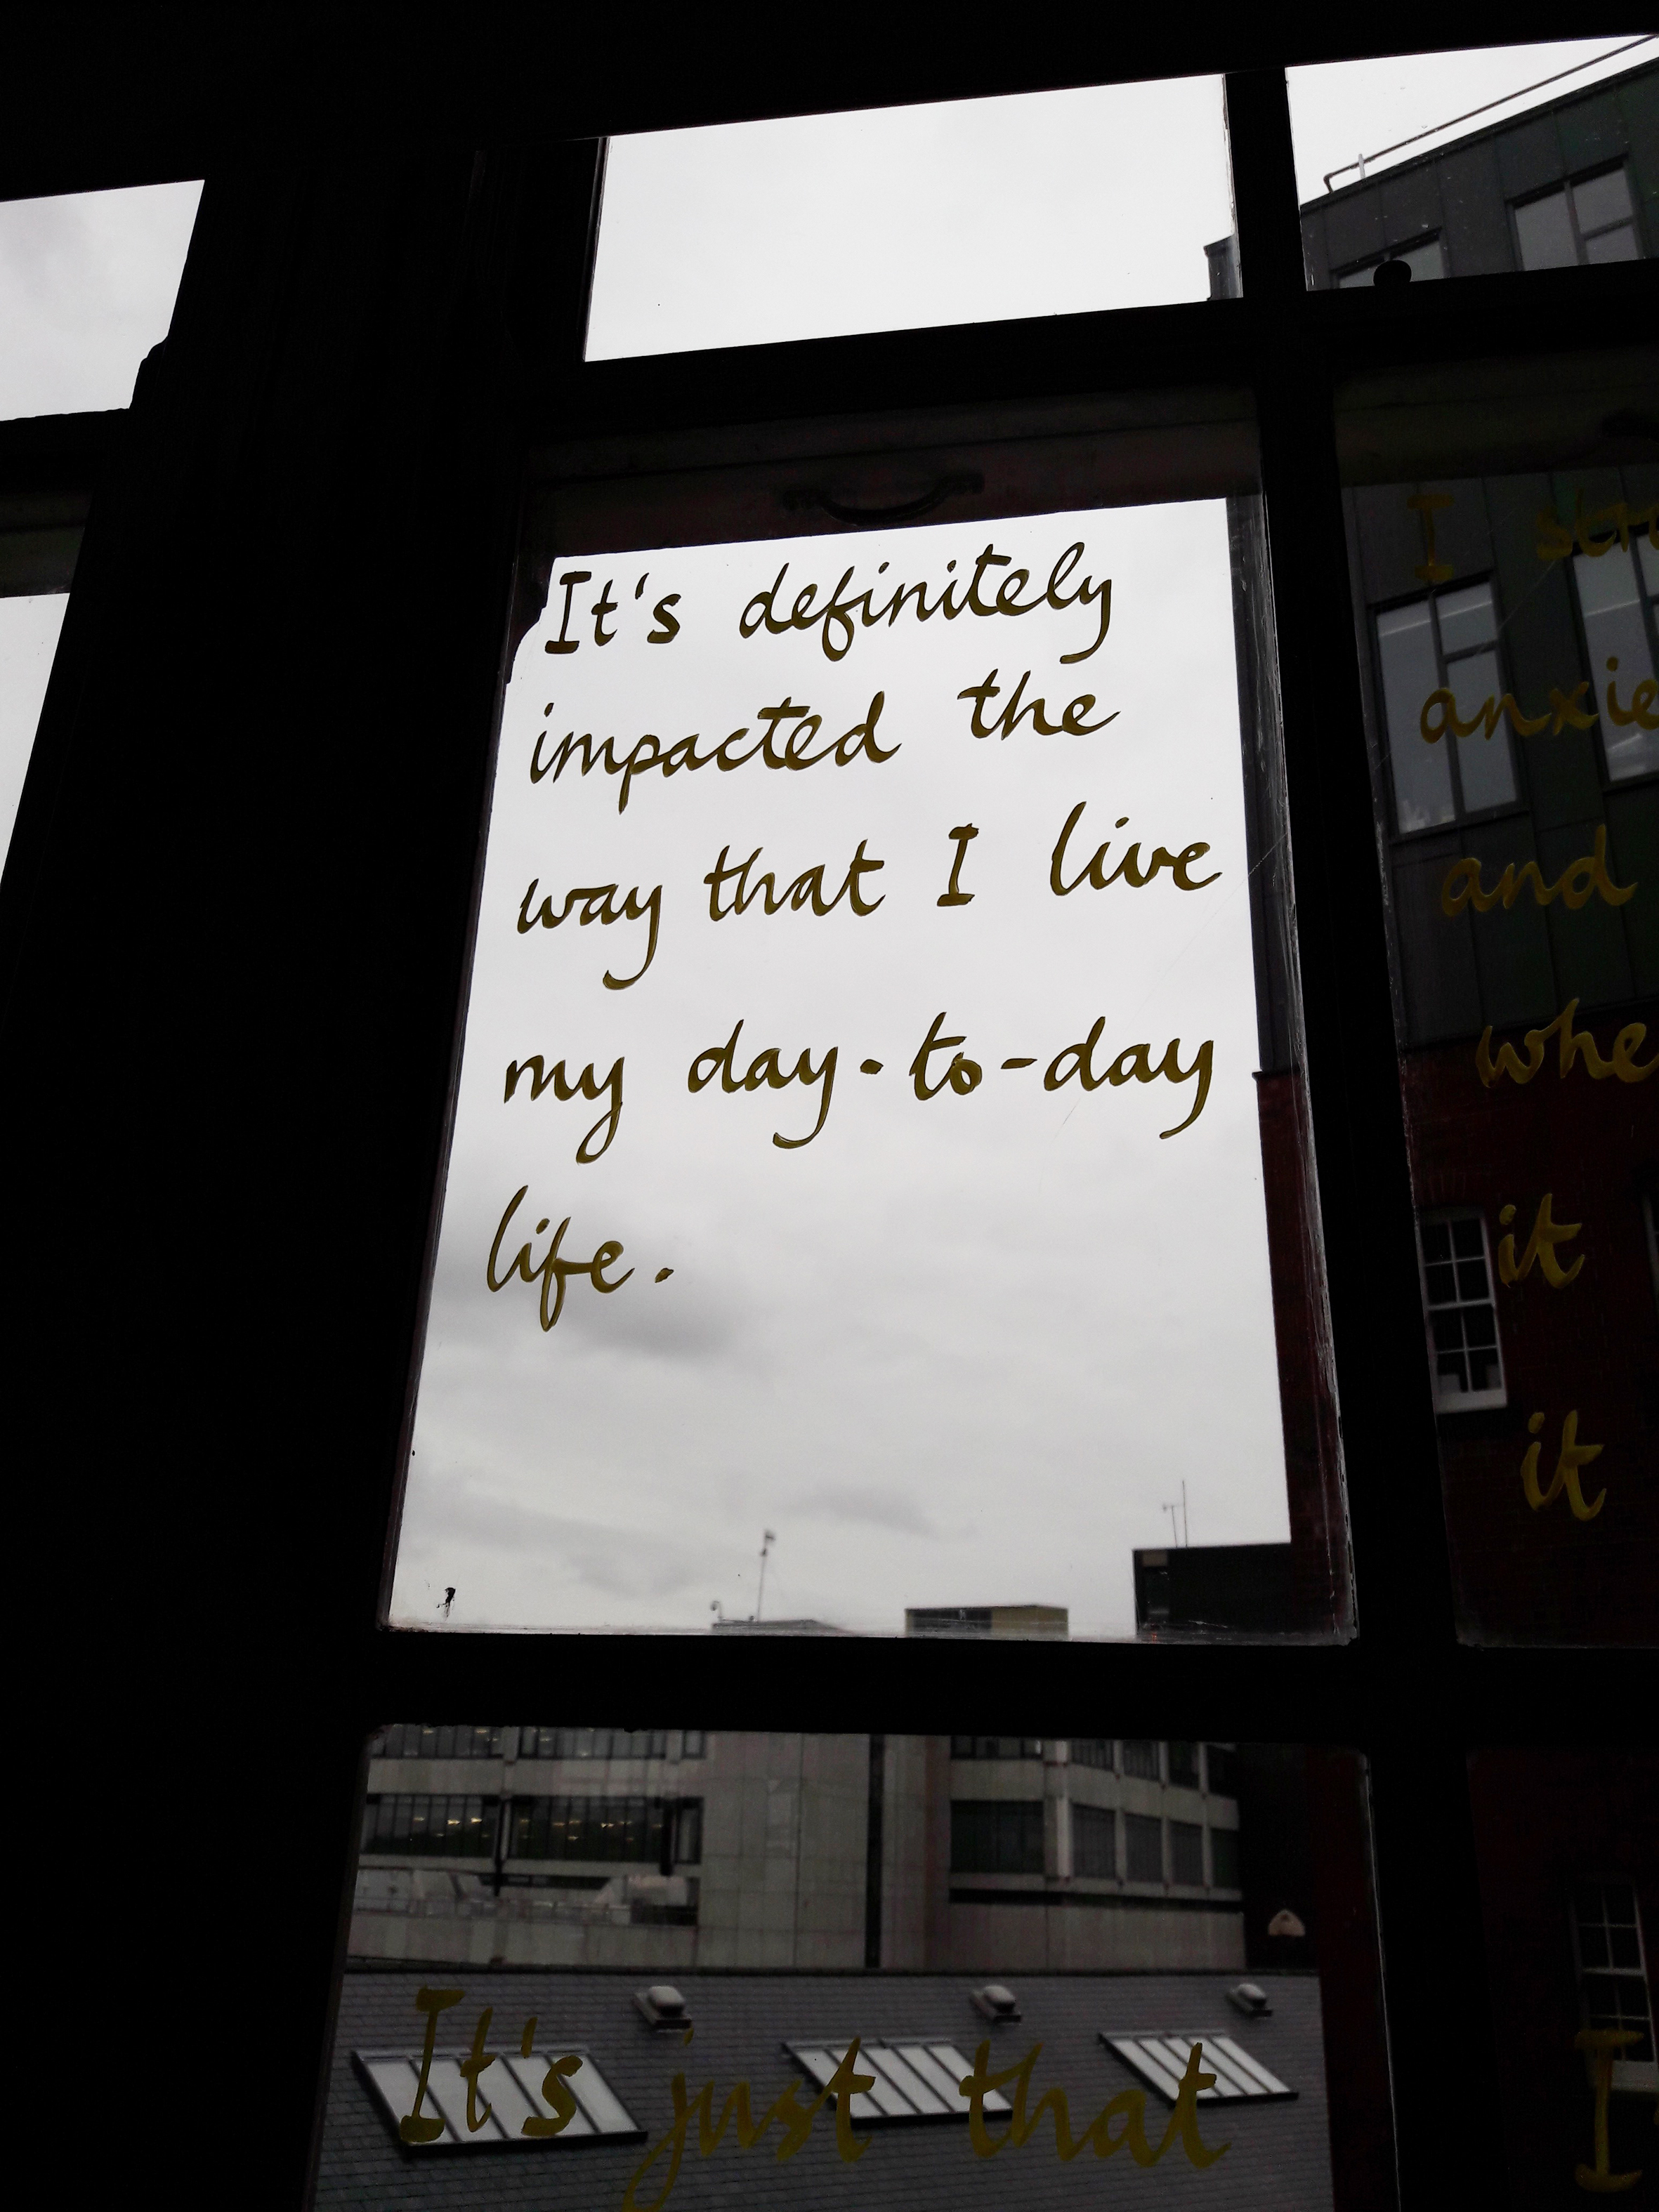 It's definitely
impacted the
way that I live
my day-to-day
life.
I
and
it
it
It's just that
I